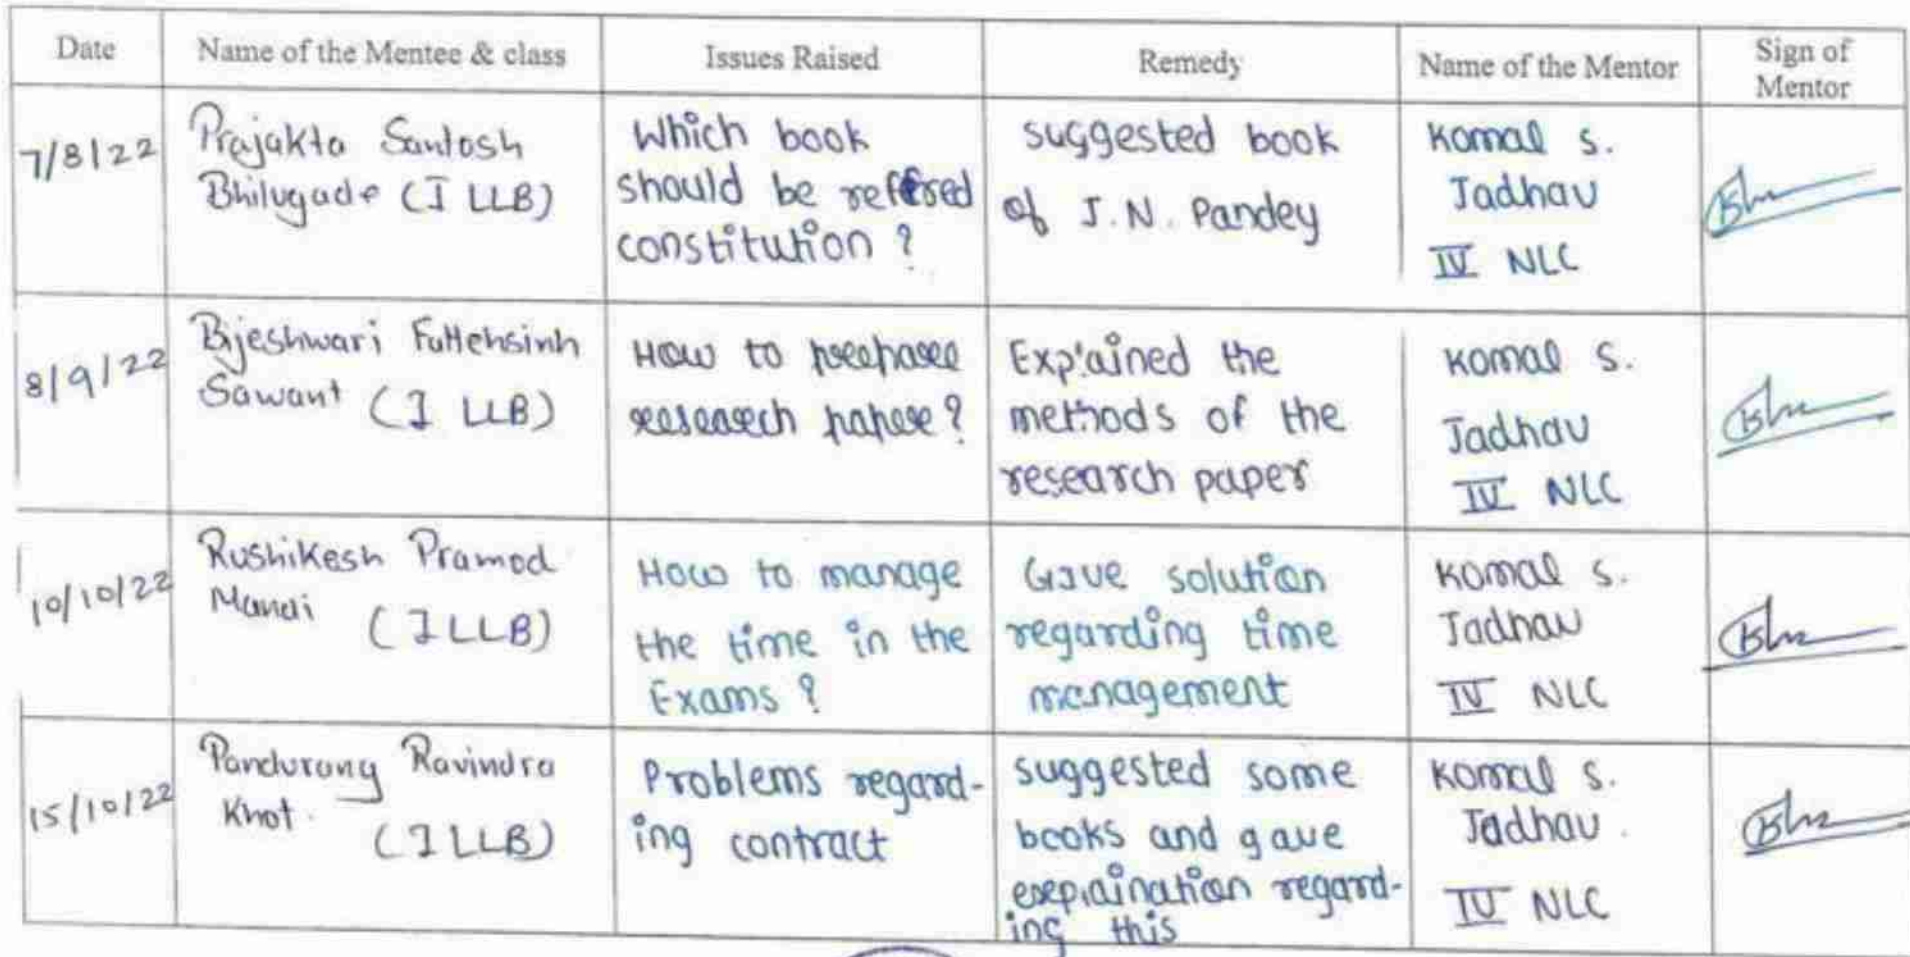 Date Name of the Mentee & class Issues Raised Remedy Name of the Mentor Sign of Mentor
7/8/22
Prajakta Santosh
Bhilugade (I LLB)
Which book
should be reffered
constitution ?
suggested book
of J.N. Pandey
Komal s.
Jadhav
IV NLC
8/9/22
Bijeshwari Futtehsinh
Sawant (I LLB)
How to preapare
research paper?
Explained the
methods of the
research paper
Komal s.
Jadhav
IV NLC
10/10/22
Rushikesh Pramod
(I LLB)
How to manage
the time in the
Exams ?
Gave solution
regarding time
management
Komal s.
Jadhav
IV NLC
15/10/22
Pandurang Ravindra
Khot.
(I LLB)
Problems regard-
ing contract
suggested some
books and gave
regard-
ing this
Komal s.
Jadhav.
IV NLC